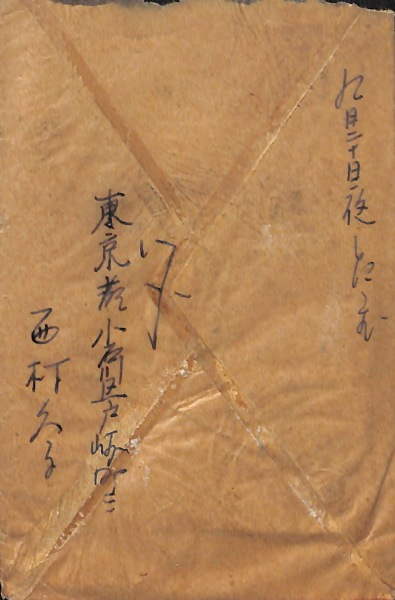 九月二十日夜 したゝむ
東京市小石川区戸崎町三
西村久子